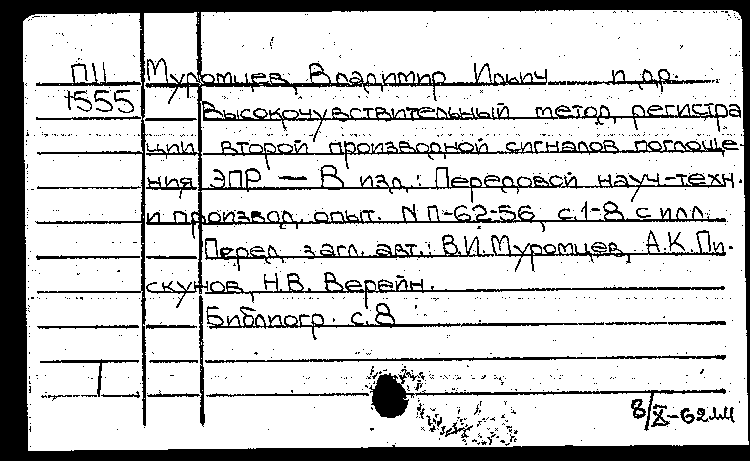 П11 Муромцев, Владимир Ильич и др.
1555 Высокочувствительный метод регистра
ции второй производной сигналов поглоще-
ния ЭПР — В изд.: Передовой науч-техн.
и производ. опыт. N П-62-56, с.1-8 с илл.
Перед загл. авт.: В.И.Муромцев, А.К.Пи-
скунов, Н.В. Верейн.
Библиогр. с.8
8/X-62